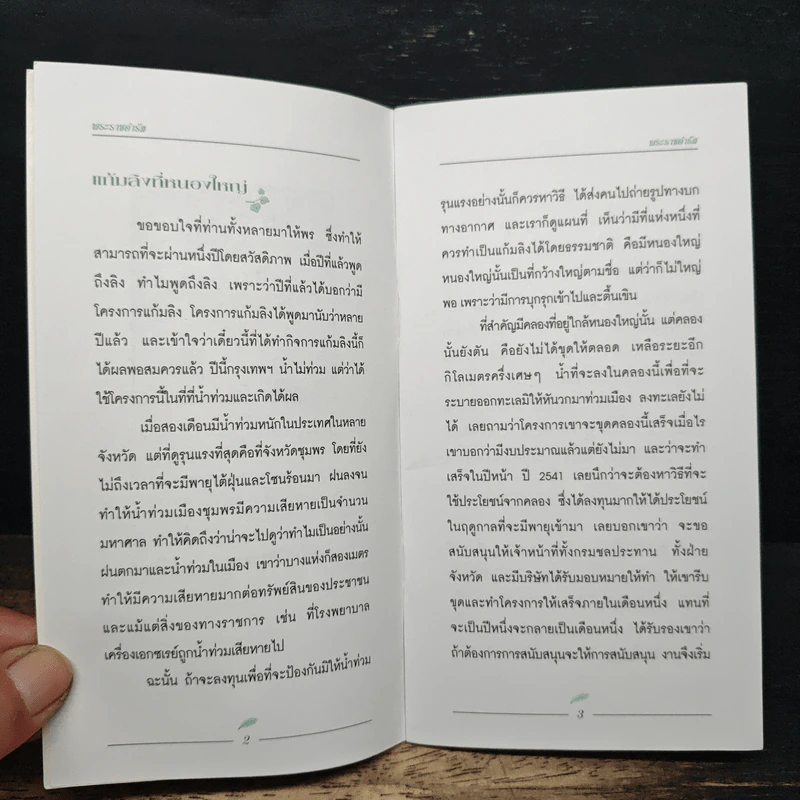 พระราชดำรัส
แก้มลิงที่หนองใหญ่
ขอขอบใจที่ท่านทั้งหลายมาให้พร ซึ่งทำให้
สามารถที่จะผ่านหนึ่งปีโดยสวัสดิภาพ เมื่อปีที่แล้วพูด
ถึงลิง ทำไมพูดถึงลิง เพราะว่าปีที่แล้วได้บอกว่ามี
โครงการแก้มลิง โครงการแก้มลิงได้พูดมานับว่าหลาย
ปีแล้ว และเข้าใจว่าเดี๋ยวนี้ที่ได้ทำกิจการแก้มลิงนี้ก็
ได้ผลพอสมควรแล้ว ปีนี้กรุงเทพฯ น้ำไม่ท่วม แต่ว่าได้
ใช้โครงการนี้ในที่ที่น้ำท่วมและเกิดได้ผล
เมื่อสองเดือนมีน้ำท่วมหนักในประเทศในหลาย
จังหวัด แต่ที่ดูรุนแรงที่สุดคือที่จังหวัดชุมพร โดยที่ยัง
ไม่ถึงเวลาที่จะมีพายุไต้ฝุ่นและโซนร้อนมา ฝนลงจน
ทำให้น้ำท่วมเมืองชุมพรมีความเสียหายเป็นจำนวน
มหาศาล ทำให้คิดถึงว่าน่าจะไปดูว่าทำไมเป็นอย่างนั้น
ฝนตกมาและน้ำท่วมในเมือง เขาว่าบางแห่งก็สองเมตร
ทำให้มีความเสียหายมากต่อทรัพย์สินของประชาชน
และแม้แต่สิ่งของทางราชการ เช่น ที่โรงพยาบาล
เครื่องเอกซเรย์ถูกน้ำท่วมเสียหายไป
ฉะนั้น ถ้าจะลงทุนเพื่อที่จะป้องกันมิให้น้ำท่วม
2
พระราชดำรัส
รุนแรงอย่างนั้นก็ควรหาวิธี ได้ส่งคนไปถ่ายรูปทางบก
ทางอากาศ และเราก็ดูแผนที่ เห็นว่ามีที่แห่งหนึ่งที่
ควรทำเป็นแก้มลิงได้โดยธรรมชาติ คือมีหนองใหญ่
หนองใหญ่นั้นเป็นที่กว้างใหญ่ตามชื่อ แต่ว่าก็ไม่ใหญ่
พอ เพราะว่ามีการบุกรุกเข้าไปและตื้นเขิน
ที่สำคัญมีคลองที่อยู่ใกล้หนองใหญ่นั้น แต่คลอง
นั้นยังตัน คือยังไม่ได้ขุดให้ตลอด เหลือระยะอีก
กิโลเมตรครึ่งเศษๆ น้ำที่จะลงในคลองนี้เพื่อที่จะ
ระบายออกทะเลมิให้หันวกมาท่วมเมือง ลงทะเลยังไม่
ได้ เลยถามว่าโครงการเขาจะขุดคลองนี้เสร็จเมื่อไร
เขาบอกว่ามีงบประมาณแล้วแต่ยังไม่มา และว่าจะทำ
เสร็จในปีหน้า ปี 2541 เลยนึกว่าจะต้องหาวิธีที่จะ
ใช้ประโยชน์จากคลอง ซึ่งได้ลงทุนมากให้ได้ประโยชน์
ในฤดูกาลที่จะมีพายุเข้ามา เลยบอกเขาว่า จะขอ
สนับสนุนให้เจ้าหน้าที่ทั้งกรมชลประทาน ทั้งฝ่าย
จังหวัด และมีบริษัทได้รับมอบหมายให้ทำ ให้เขารีบ
ขุดและทำโครงการให้เสร็จภายในเดือนหนึ่ง แทนที่
จะเป็นปีหนึ่งจะกลายเป็นเดือนหนึ่ง ได้รับรองเขาว่า
ถ้าต้องการการสนับสนุนจะให้การสนับสนุน งานจึงเริ่ม
3